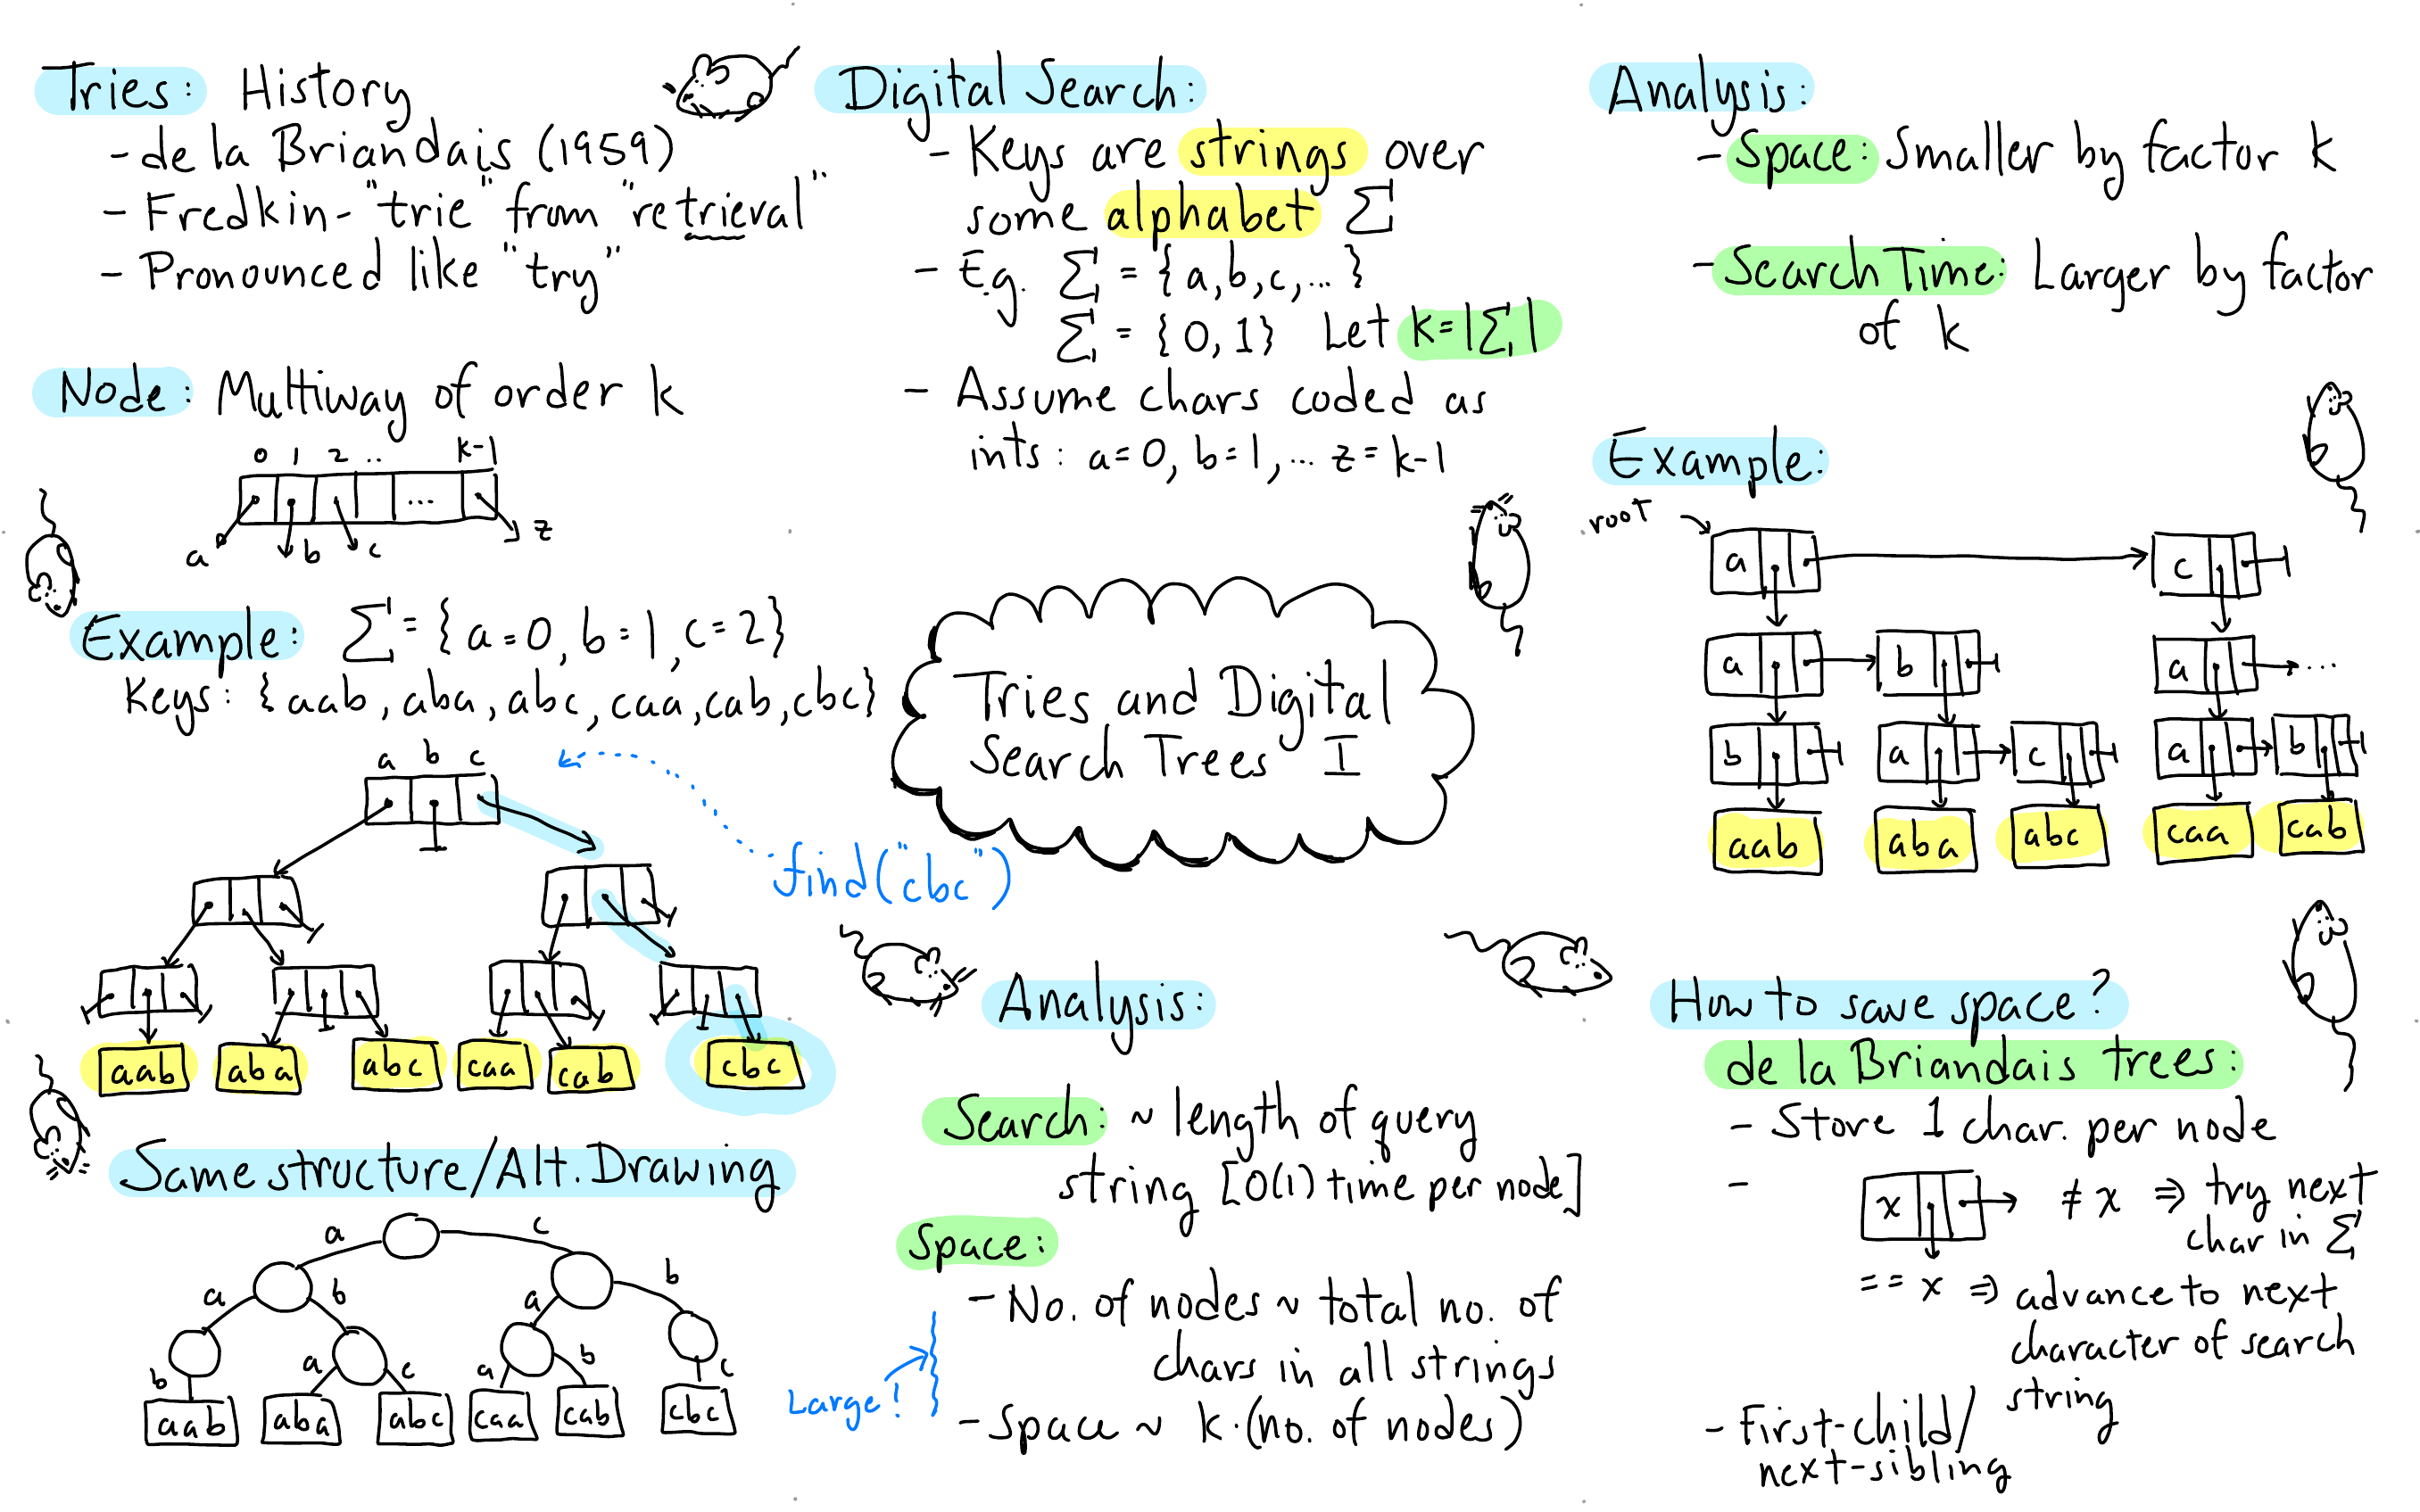 Tries: History
- de la Briandais (1959)
- Fredkin - "trie" from "retrieval"
- Pronounced like "try"
Node: Multiway of order k
0 1 2 .. k-1
...
a b c z
Example: Σ = {a=0, b=1, c=2}
Keys: {aab, aba, abc, caa, cab, cbc}
a b c
find("cbc")
aab aba abc caa cab cbc
Same structure/Alt. Drawing
a c
a b a b
b a c a b c
aab aba abc caa cab cbc
Digital Search:
- Keys are strings over
some alphabet Σ
- E.g. Σ = {a,b,c,...}
Σ = {0,1} Let k=|Σ|
- Assume chars coded as
ints: a=0, b=1,... z=k-1
Tries and Digital
Search Trees I
Analysis:
Search: ~ length of query
string [O(1) time per node]
Space:
- No. of nodes ~ total no. of
chars in all strings
- Space ~ k·(no. of nodes)
Large!
Analysis:
- Space: Smaller by factor k
- Search Time: Larger by factor
of k
Example:
root
a c
a b a ...
b a c a b
aab aba abc caa cab
How to save space?
de la Briandais trees:
- Store 1 char. per node
- x ≠ x ⇒ try next
char in Σ
== x ⇒ advance to next
character of search
string
- First-child/
next-sibling